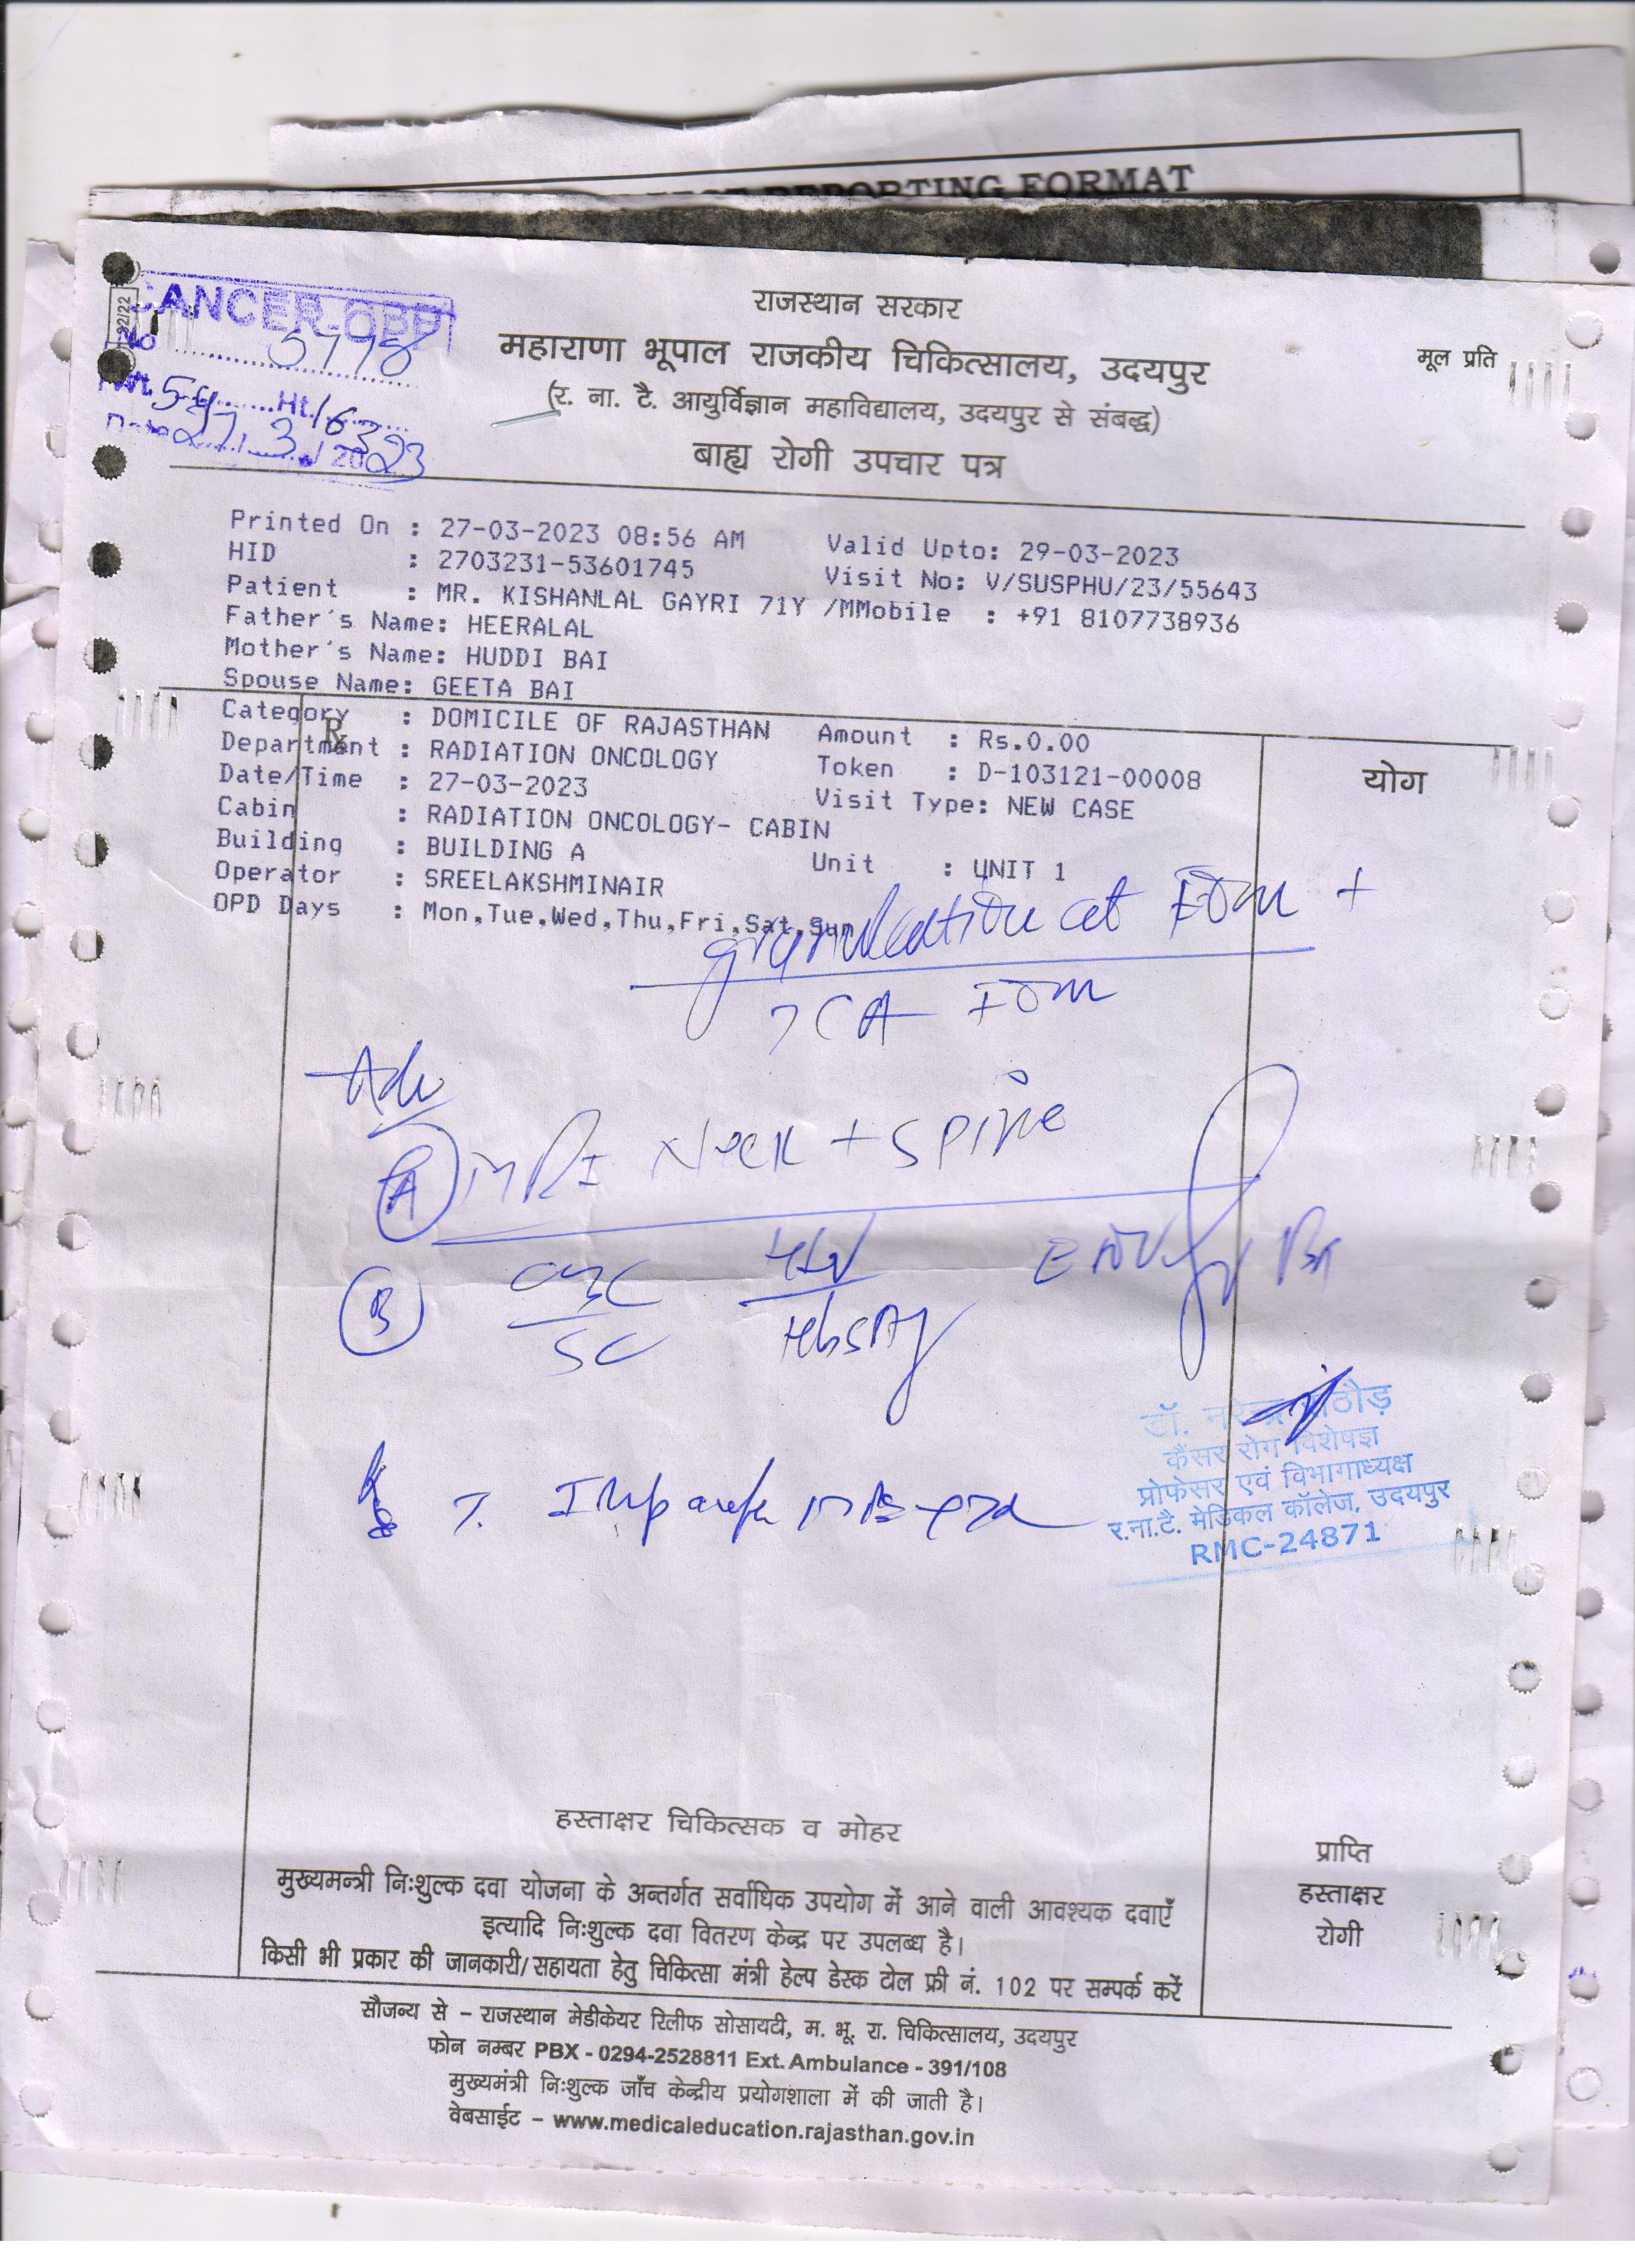 REPORTING FORMAT
22/22
CANCER-OPD
No 5778
Wt. 54 Ht. 163
Date 27/3/2023
राजस्थान सरकार
महाराणा भूपाल राजकीय चिकित्सालय, उदयपुर
मूल प्रति
(र. ना. टै. आयुर्विज्ञान महाविद्यालय, उदयपुर से संबद्ध)
बाह्य रोगी उपचार पत्र
Printed On : 27-03-2023 08:56 AM Valid Upto: 29-03-2023
HID : 2703231-53601745 Visit No: V/SUSPHU/23/55643
Patient : MR. KISHANLAL GAYRI 71Y /MMobile : +91 8107738936
Father's Name: HEERALAL
Mother's Name: HUDDI BAI
Spouse Name: GEETA BAI
Category : DOMICILE OF RAJASTHAN Amount : Rs.0.00
Department : RADIATION ONCOLOGY Token : D-103121-00008
Date/Time : 27-03-2023 Visit Type: NEW CASE
Cabin : RADIATION ONCOLOGY- CABIN
Building : BUILDING A Unit : UNIT 1
Operator : SREELAKSHMINAIR
OPD Days : Mon,Tue,Wed,Thu,Fri,Sat,Sun
℞
योग
granulation at +
? CA
Adv
(A) MRI Neck + Spine
(B) CBC HIV
SC HbsAg
डॉ. नरेन्द्र राठौड़
कैंसर रोग विशेषज्ञ
प्रोफेसर एवं विभागाध्यक्ष
र.ना.टै. मेडिकल कॉलेज, उदयपुर
RMC-24871
हस्ताक्षर चिकित्सक व मोहर
प्राप्ति
हस्ताक्षर
रोगी
मुख्यमन्त्री निःशुल्क दवा योजना के अन्तर्गत सर्वाधिक उपयोग में आने वाली आवश्यक दवाएँ
इत्यादि निःशुल्क दवा वितरण केन्द्र पर उपलब्ध है।
किसी भी प्रकार की जानकारी/सहायता हेतु चिकित्सा मंत्री हेल्प डेस्क टोल फ्री नं. 102 पर सम्पर्क करें
सौजन्य से - राजस्थान मेडीकेयर रिलीफ सोसायटी, म. भू. रा. चिकित्सालय, उदयपुर
फोन नम्बर PBX - 0294-2528811 Ext. Ambulance - 391/108
मुख्यमंत्री निःशुल्क जाँच केन्द्रीय प्रयोगशाला में की जाती है।
वेबसाईट - www.medicaleducation.rajasthan.gov.in